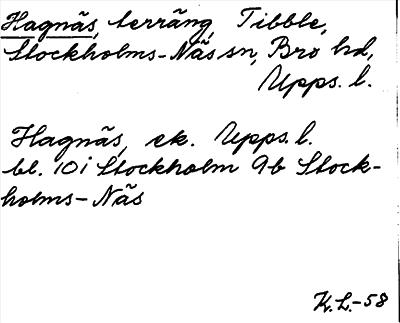 Hagnäs, terräng, Tibble,
Stockholms-Näs sn, Bro hd,
Upps. l.
Hagnäs, ek. Upps. l.
bl. 10i Stockholm 9b Stock-
holms-Näs
K.L.-58